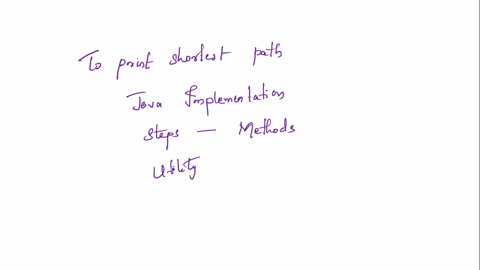 To print shortest path
Java Implementation
Steps — Methods
Utility